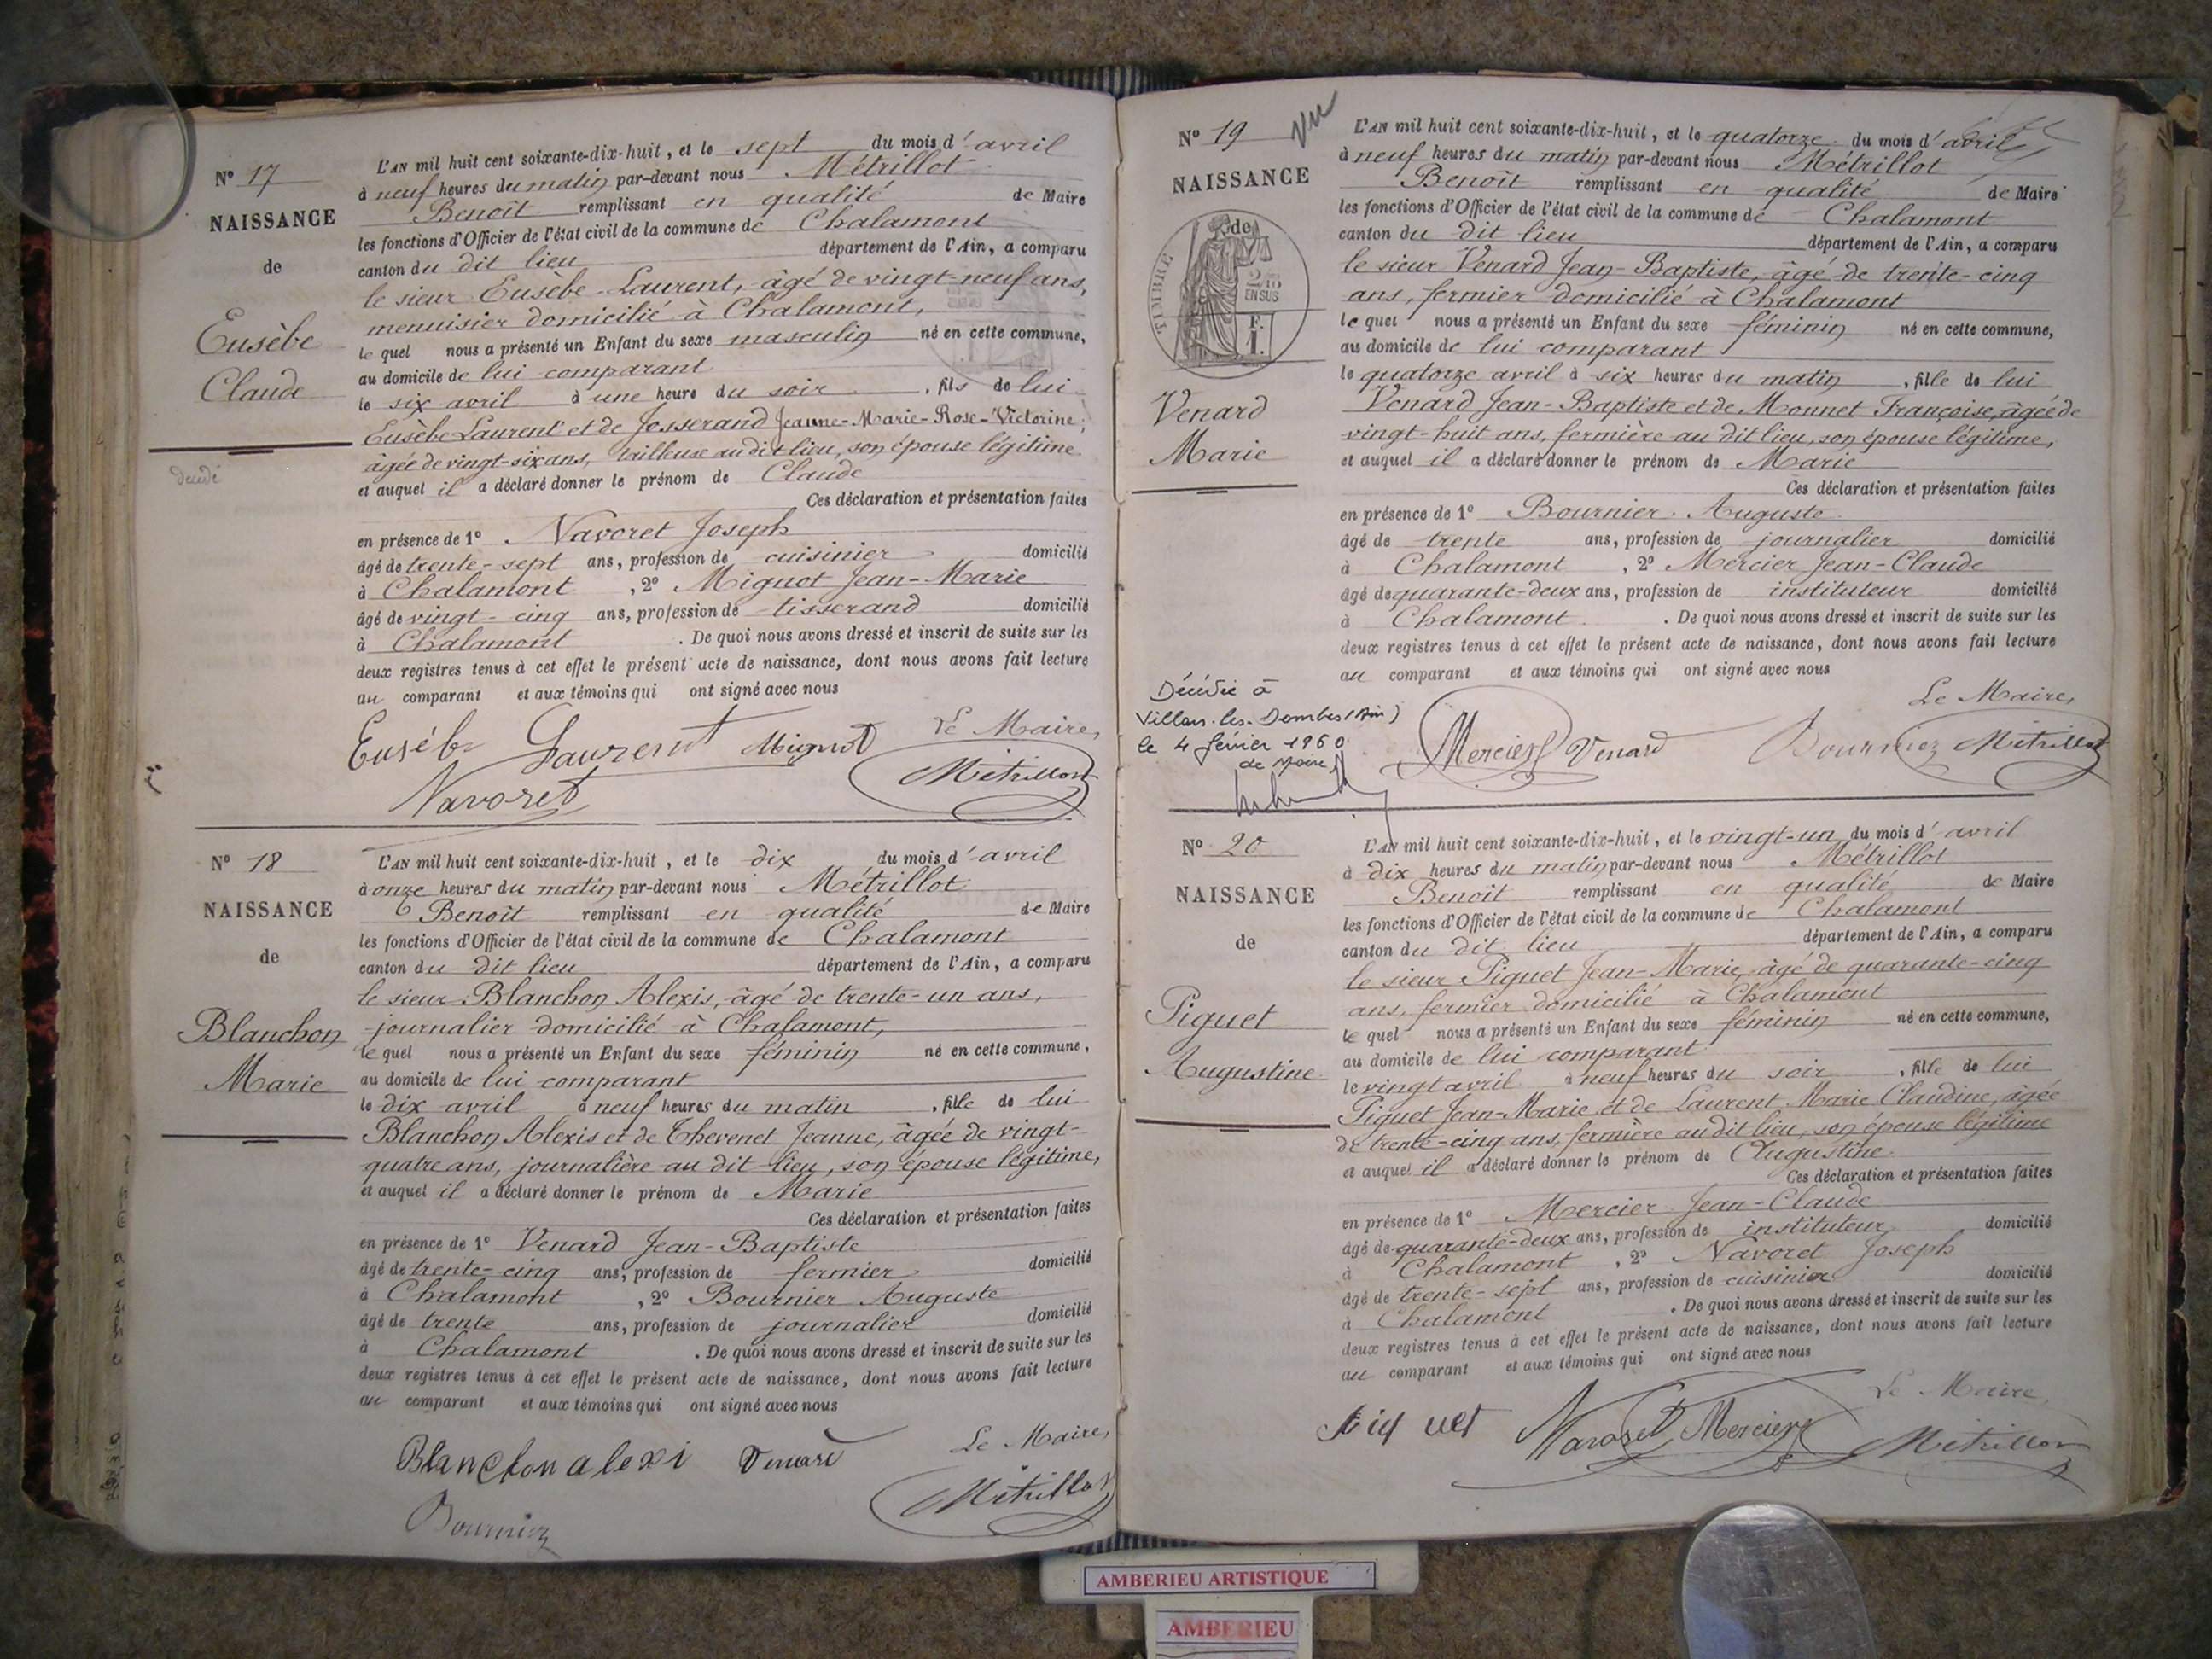 N° 17
NAISSANCE
de
Eusèbe
Claude
décédé
L'AN mil huit cent soixante-dix-huit, et le sept du mois d'avril
à neuf heures du matin par-devant nous Métrillot
Benoit remplissant en qualité de Maire
les fonctions d'Officier de l'état civil de la commune de Chalamont
canton du dit lieu département de l'Ain, a comparu
le sieur Eusèbe Laurent, âgé de vingt-neuf ans,
menuisier domicilié à Chalamont,
le quel nous a présenté un Enfant du sexe masculin né en cette commune,
au domicile de lui comparant
le six avril à une heure du soir, fils de lui
Eusèbe Laurent et de Josserand Jeanne-Marie-Rose-Victorine,
âgée de vingt-six ans, tailleuse au dit lieu, son épouse légitime
et auquel il a déclaré donner le prénom de Claude
Ces déclaration et présentation faites
en présence de 1° Navoret Joseph
âgé de trente-sept ans, profession de cuisinier domicilié
à Chalamont, 2° Miguot Jean-Marie
âgé de vingt-cinq ans, profession de tisserand domicilié
à Chalamont. De quoi nous avons dressé et inscrit de suite sur les
deux registres tenus à cet effet le présent acte de naissance, dont nous avons fait lecture
au comparant et aux témoins qui ont signé avec nous
Le Maire,
Eusébe Laurent Mignot
Métrillot
Navoret
N° 18
NAISSANCE
de
Blanchon
Marie
L'AN mil huit cent soixante-dix-huit, et le dix du mois d'avril
à onze heures du matin par-devant nous Métrillot
Benoit remplissant en qualité de Maire
les fonctions d'Officier de l'état civil de la commune de Chalamont
canton du dit lieu département de l'Ain, a comparu
le sieur Blanchon Alexis, âgé de trente-un ans,
journalier domicilié à Chalamont,
le quel nous a présenté un Enfant du sexe féminin né en cette commune,
au domicile de lui comparant
le dix avril à neuf heures du matin, fille de lui
Blanchon Alexis et de Chevenet Jeanne, âgée de vingt-
quatre ans, journalière au dit lieu, son épouse légitime,
et auquel il a déclaré donner le prénom de Marie
Ces déclaration et présentation faites
en présence de 1° Venard Jean-Baptiste
âgé de trente-cinq ans, profession de fermier domicilié
à Chalamont, 2° Bournier Auguste
âgé de trente ans, profession de journalier domicilié
à Chalamont. De quoi nous avons dressé et inscrit de suite sur les
deux registres tenus à cet effet le présent acte de naissance, dont nous avons fait lecture
au comparant et aux témoins qui ont signé avec nous
Le Maire,
Blanchon alexi Venard
Métrillot
Bournier
N° 19
vu
NAISSANCE
de
TIMBRE
2/10
EN SUS
F.
1.
Venard
Marie
L'AN mil huit cent soixante-dix-huit, et le quatorze du mois d'avril
à neuf heures du matin par-devant nous Métrillot
Benoit remplissant en qualité de Maire
les fonctions d'Officier de l'état civil de la commune de Chalamont
canton du dit lieu département de l'Ain, a comparu
le sieur Venard Jean-Baptiste, âgé de trente-cinq
ans, fermier domicilié à Chalamont
le quel nous a présenté un Enfant du sexe féminin né en cette commune,
au domicile de lui comparant
le quatorze avril à six heures du matin, fille de lui
Venard Jean-Baptiste et de Monnet Françoise, âgée de
vingt-huit ans, fermière au dit lieu, son épouse légitime,
et auquel il a déclaré donner le prénom de Marie
Ces déclaration et présentation faites
en présence de 1° Bournier Auguste
âgé de trente ans, profession de journalier domicilié
à Chalamont, 2° Mercier Jean-Claude
âgé de quarante-deux ans, profession de instituteur domicilié
à Chalamont. De quoi nous avons dressé et inscrit de suite sur les
deux registres tenus à cet effet le présent acte de naissance, dont nous avons fait lecture
au comparant et aux témoins qui ont signé avec nous
Le Maire,
Mercier Venard Bournier Métrillot
Décédée à
Villars-les-Dombes (Ain)
le 4 février 1960
N° 20
NAISSANCE
de
Piguet
Augustine
L'AN mil huit cent soixante-dix-huit, et le vingt-un du mois d'avril
à dix heures du matin par-devant nous Métrillot
Benoit remplissant en qualité de Maire
les fonctions d'Officier de l'état civil de la commune de Chalamont
canton du dit lieu département de l'Ain, a comparu
le sieur Piguet Jean-Marie, âgé de quarante-cinq
ans, fermier domicilié à Chalamont
le quel nous a présenté un Enfant du sexe féminin né en cette commune,
au domicile de lui comparant
le vingt avril à neuf heures du soir, fille de lui
Piguet Jean-Marie et de Laurent Marie Claudine, âgée
de trente-cinq ans, fermière au dit lieu, son épouse légitime
et auquel il a déclaré donner le prénom de Augustine
Ces déclaration et présentation faites
en présence de 1° Mercier Jean-Claude
âgé de quarante-deux ans, profession de instituteur domicilié
à Chalamont, 2° Navoret Joseph
âgé de trente-sept ans, profession de cuisinier domicilié
à Chalamont. De quoi nous avons dressé et inscrit de suite sur les
deux registres tenus à cet effet le présent acte de naissance, dont nous avons fait lecture
au comparant et aux témoins qui ont signé avec nous
Le Maire,
Piquet Navoret Mercier Métrillot
AMBERIEU ARTISTIQUE
AMBERIEU